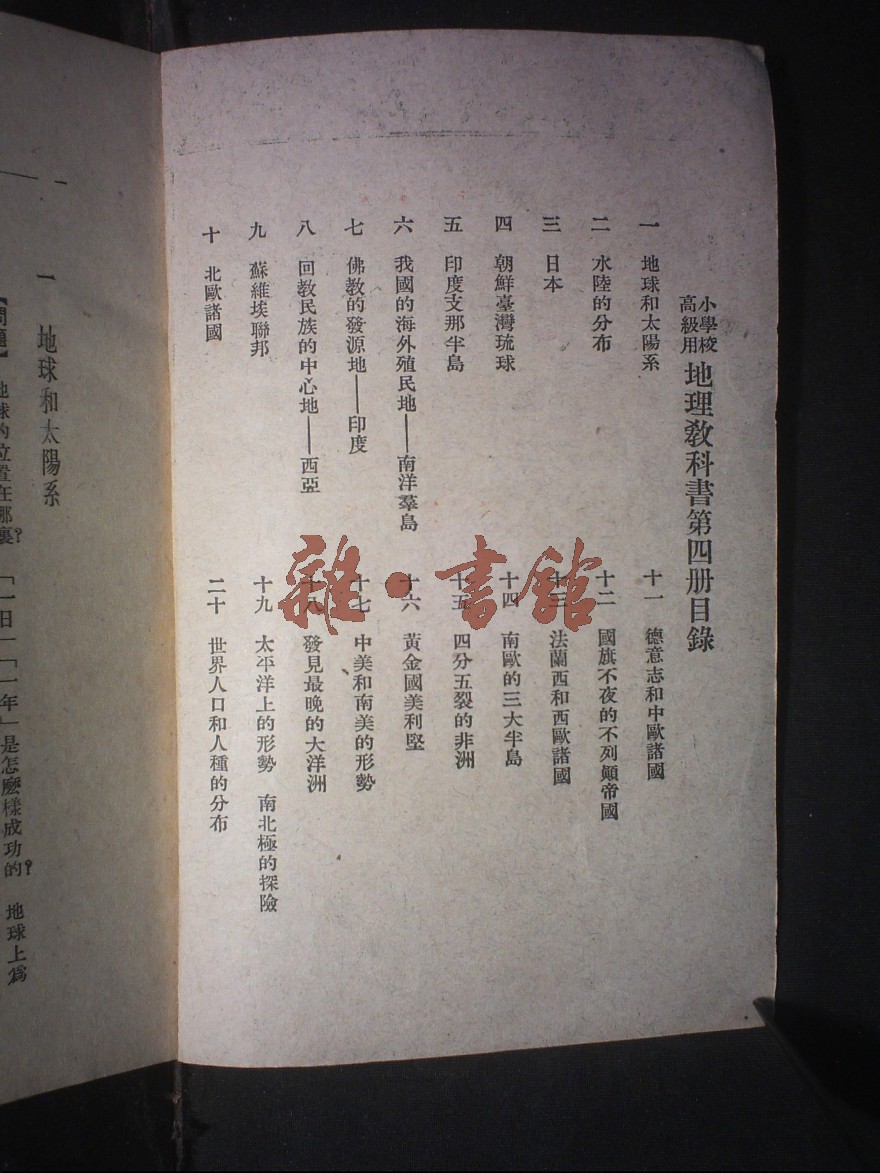 小學校
高級用
地理教科書第四册目錄
一　地球和太陽系
二　水陸的分布
三　日本
四　朝鮮臺灣琉球
五　印度支那半島
六　我國的海外殖民地——南洋羣島
七　佛教的發源地——印度
八　回教民族的中心地——西亞
九　蘇維埃聯邦
十　北歐諸國
十一　德意志和中歐諸國
十二　國旗不夜的不列顛帝國
十三　法蘭西和西歐諸國
十四　南歐的三大半島
十五　四分五裂的非洲
十六　黃金國美利堅
十七　中美和南美的形勢
十八　發見最晚的大洋洲
十九　太平洋上的形勢　南北極的探險
二十　世界人口和人種的分布
雜·書館
一
一　地球和太陽系
【問題】　地球的位置在那裏？　「一日」「一年」是怎麽樣成功的？　地球上爲